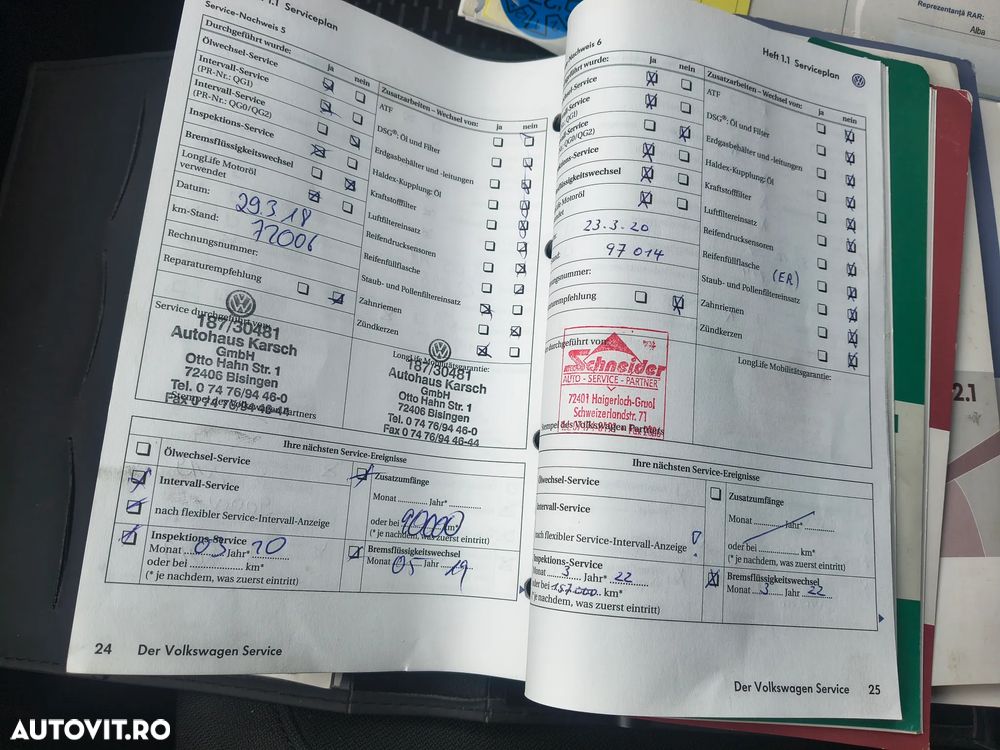 t 1.1 Serviceplan
Service-Nachweis 5
Durchgeführt wurde:
ja
nein
Ölwechsel-Service
Intervall-Service
(PR-Nr.: QG1)
Intervall-Service
(PR-Nr.: QG0/QG2)
Inspektions-Service
Bremsflüssigkeitswechsel
LongLife Motoröl
verwendet
Datum:
29.3 18
km-Stand:
72006
Rechnungsnummer:
Reparaturempfehlung
Zusatzarbeiten – Wechsel von:
ja
nein
ATF
DSG®: Öl und Filter
Erdgasbehälter und -leitungen
Haldex-Kupplung: Öl
Kraftstofffilter
Luftfiltereinsatz
Reifendrucksensoren
Reifenfüllflasche
Staub- und Pollenfiltereinsatz
Zahnriemen
Zündkerzen
Service durchgeführt von:
187/30481
Autohaus Karsch
GmbH
Otto Hahn Str. 1
72406 Bisingen
Tel. 0 74 76/94 46-0
Fax 0 74 76/94 46-44
LongLife Mobilitätsgarantie:
187/30481
Autohaus Karsch
GmbH
Otto Hahn Str. 1
72406 Bisingen
Tel. 0 74 76/94 46-0
Fax 0 74 76/94 46-44
Ihre nächsten Service-Ereignisse
Ölwechsel-Service
Intervall-Service
nach flexibler Service-Intervall-Anzeige
Inspektions-Service
Monat 03 Jahr* 20
oder bei km*
(* je nachdem, was zuerst eintritt)
Zusatzumfänge
Monat Jahr*
oder bei 90000 km*
(* je nachdem, was zuerst eintritt)
Bremsflüssigkeitswechsel
Monat 05 Jahr 19
24 Der Volkswagen Service
-Nachweis 6
Heft 1.1 Serviceplan
geführt wurde:
ja
nein
sel-Service
l-Service
QG1)
-Service
QG0/QG2)
ons-Service
lüssigkeitswechsel
Motoröl
23.3.20
97 014
ngsnummer:
turempfehlung
Zusatzarbeiten – Wechsel von:
ja
nein
ATF
DSG®: Öl und Filter
Erdgasbehälter und -leitungen
Haldex-Kupplung: Öl
Kraftstofffilter
Luftfiltereinsatz
Reifendrucksensoren
Reifenfüllflasche
(ER)
Staub- und Pollenfiltereinsatz
Zahnriemen
Zündkerzen
durchgeführt von:
Schneider
AUTO - SERVICE - PARTNER
72401 Haigerloch-Gruol
Schweizerlandstr. 71
Stempel des Volkswagen Partners
LongLife Mobilitätsgarantie:
Ihre nächsten Service-Ereignisse
Ölwechsel-Service
Intervall-Service
nach flexibler Service-Intervall-Anzeige
Inspektions-Service
Monat 3 Jahr* 22
oder bei 157000 km*
* je nachdem, was zuerst eintritt)
Zusatzumfänge
Monat Jahr*
oder bei km*
(* je nachdem, was zuerst eintritt)
Bremsflüssigkeitswechsel
Monat 3 Jahr 22
Der Volkswagen Service 25
Reprezentanţă RAR:
Alba
2.1
AUTOVIT.RO